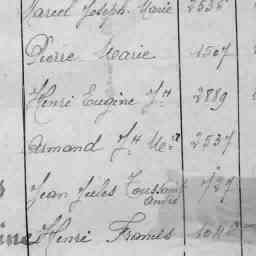 Marcel Joseph Marie 2535
Pierre Marie 1507
Henri Eugène Jh 2889
Armand Jh Mie 2537
Jean Jules Toussaint André 727
Henri Francis